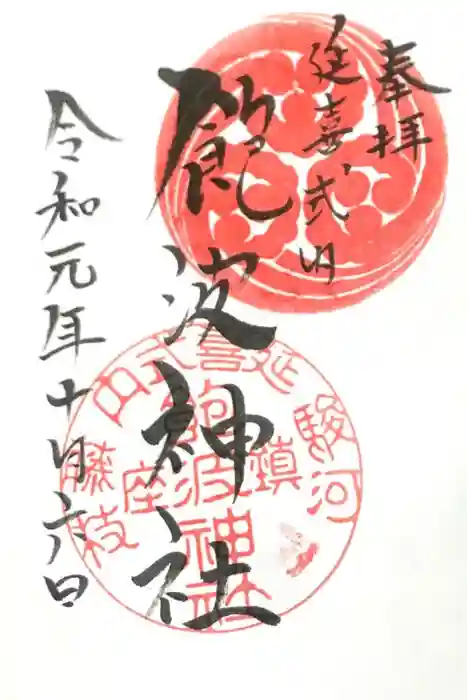 奉拝
延喜式内
飽波神社
令和元年十月六日
駿河
延喜式内
鎮座
飽波神社
藤枝